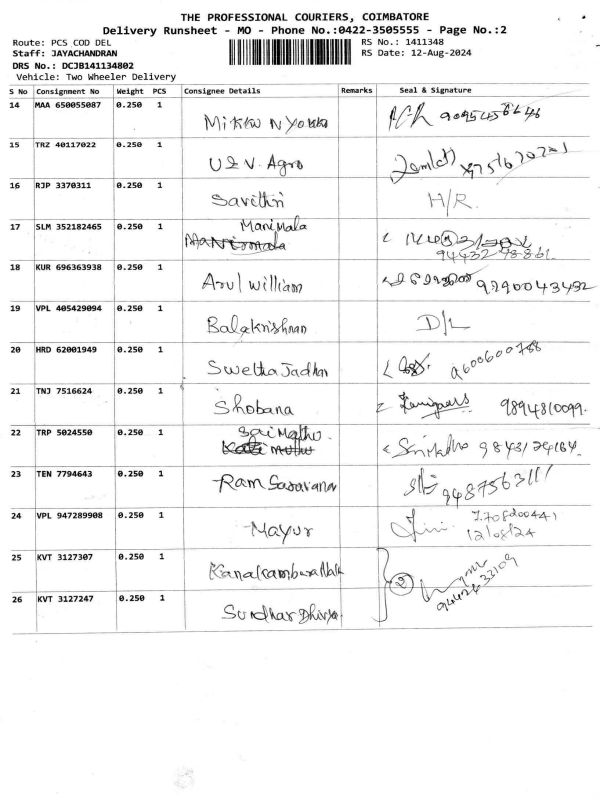 THE PROFESSIONAL COURIERS, COIMBATORE
Delivery Runsheet - MO - Phone No.:0422-3505555 - Page No.:2
Route: PCS COD DEL RS No.: 1411348
Staff: JAYACHANDRAN RS Date: 12-Aug-2024
DRS No.: DCJB141134802
Vehicle: Two Wheeler Delivery
S No Consignment No Weight PCS Consignee Details Remarks Seal & Signature
14 MAA 650055087 0.250 1
15 TRZ 40117022 0.250 1 U & V. Agro
16 RJP 3370311 0.250 1 Savithri H/R
17 SLM 352182465 0.250 1 Manimala
18 KUR 696363938 0.250 1 Arul William 9290043432
19 VPL 405429094 0.250 1 Balakrishnan D/L
20 HRD 62001949 0.250 1 Swetha Jadhav 9600600788
21 TNJ 7516624 0.250 1 Shobana 9894810099.
22 TRP 5024550 0.250 1 Sai Muthu
23 TEN 7794643 0.250 1 Ram Saravana 9487563111
24 VPL 947289908 0.250 1 Mayur 7708200441
12/08/24
25 KVT 3127307 0.250 1
26 KVT 3127247 0.250 1 Sundhar Dhivya